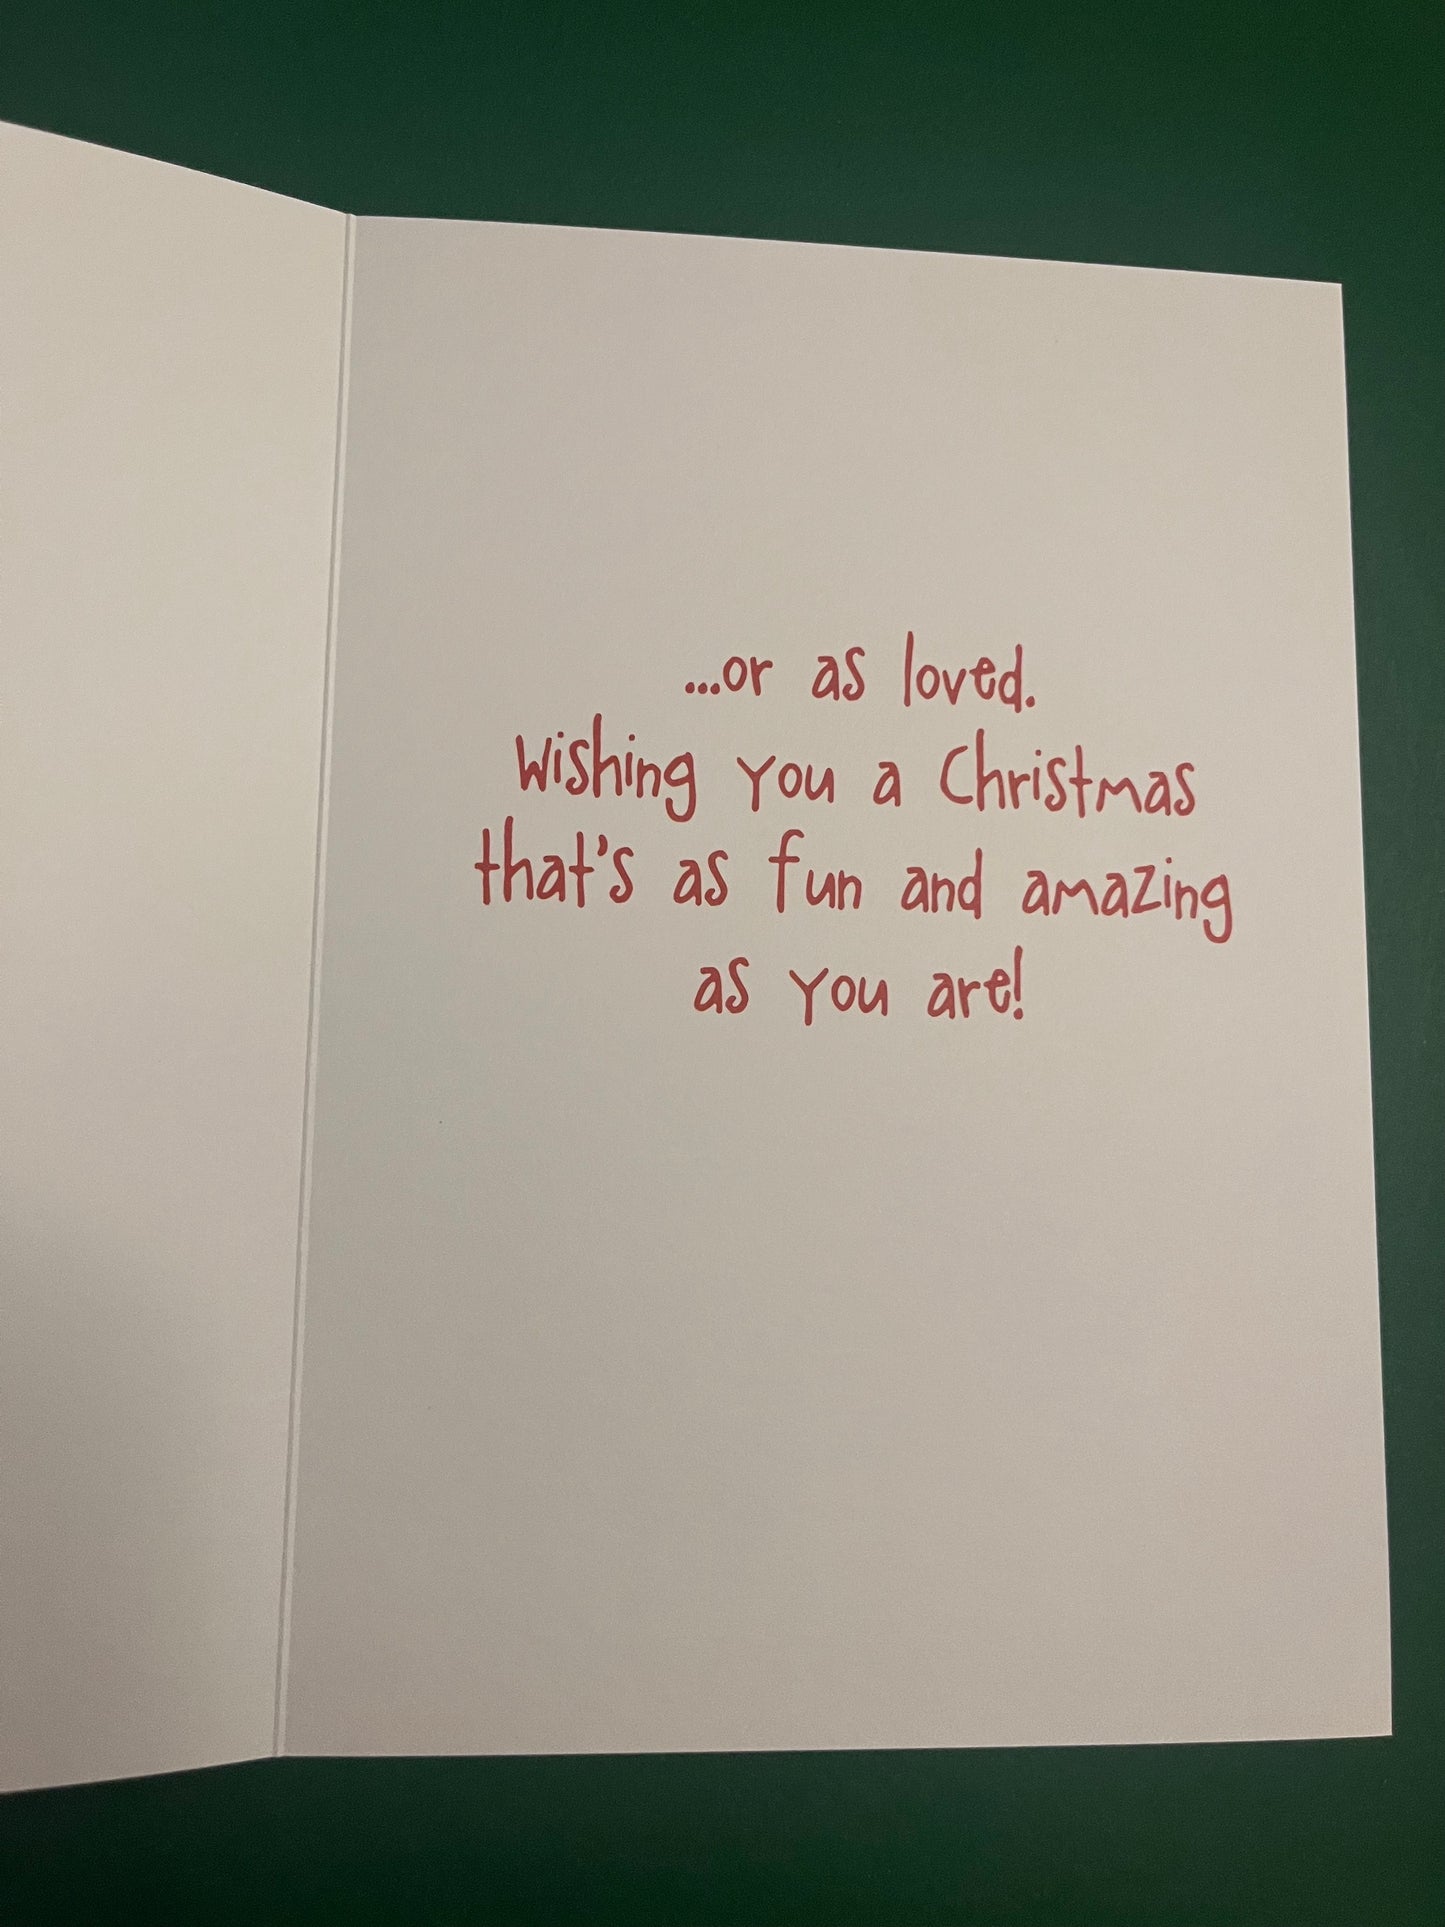 ...or as loved.
Wishing you a Christmas
that's as fun and amazing
as you are!